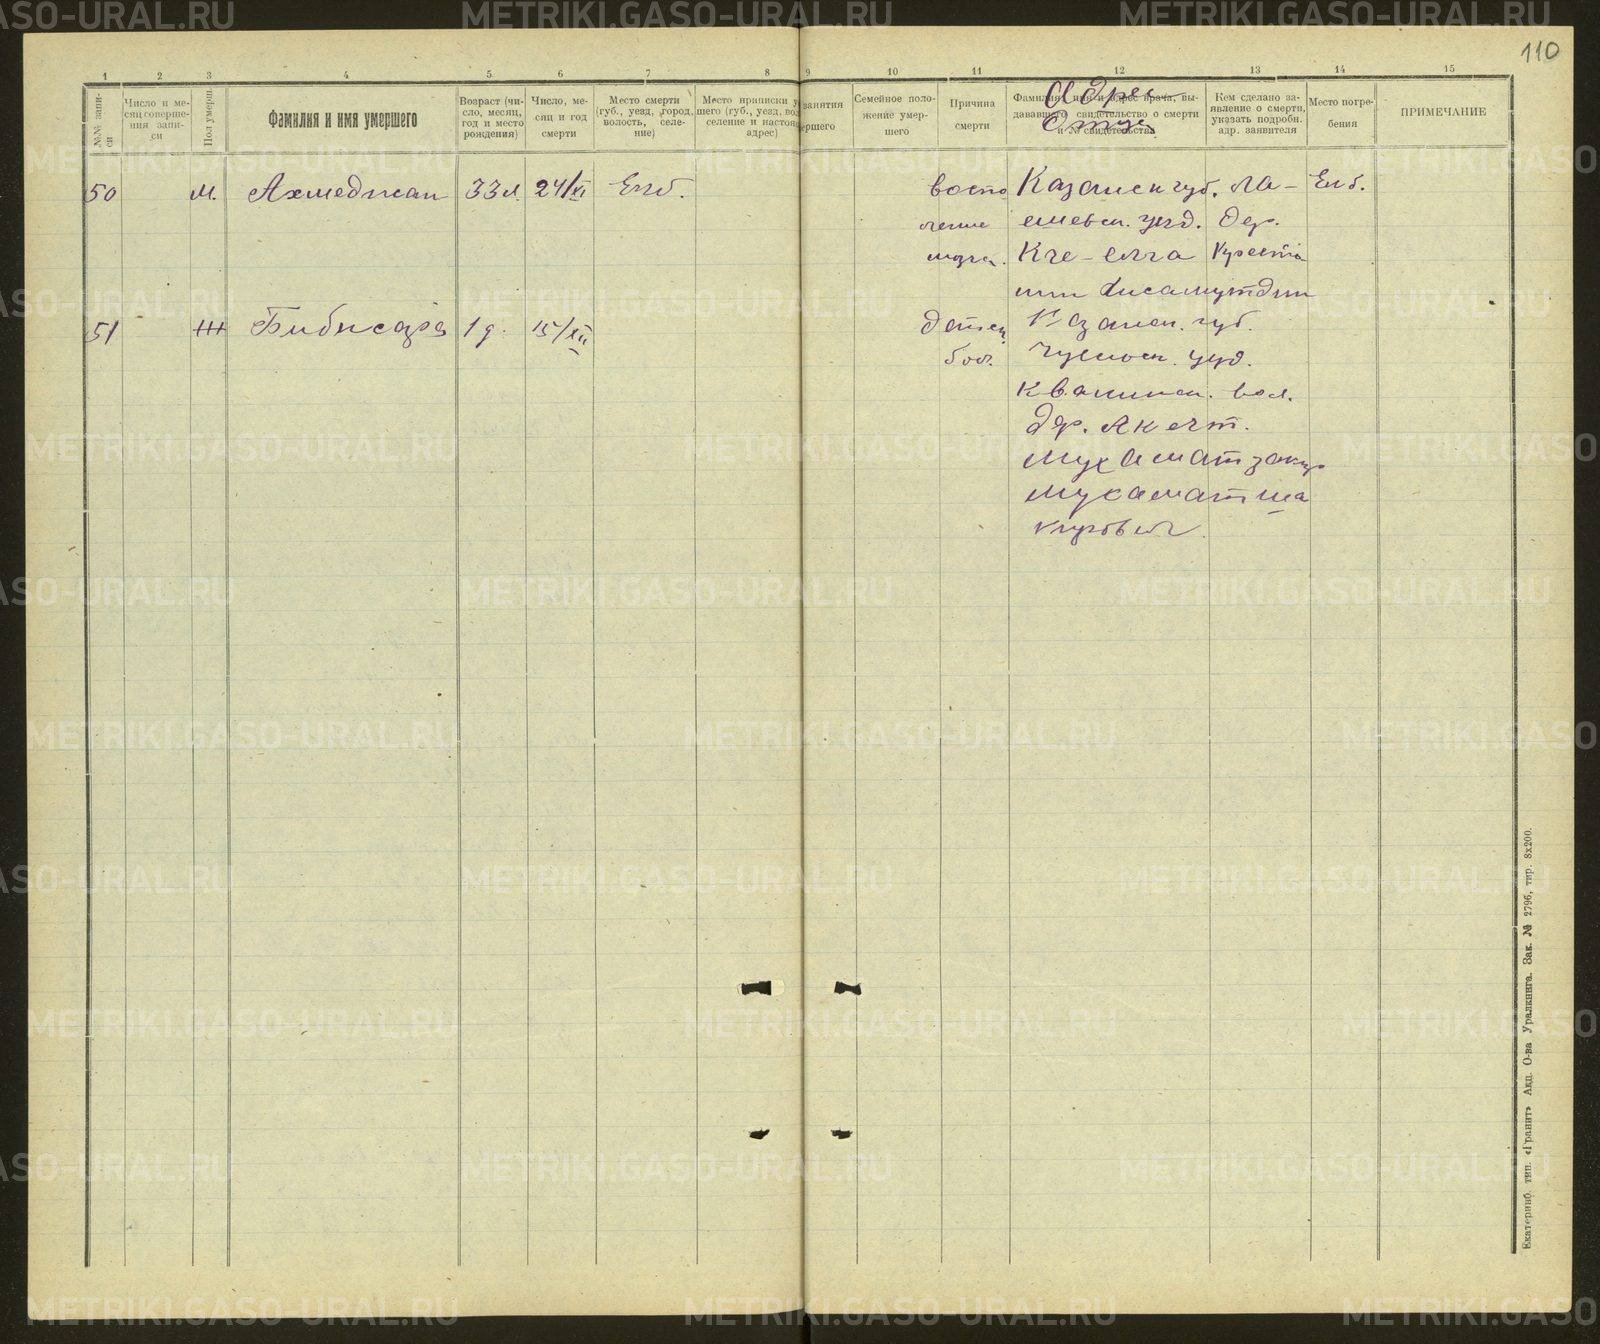 110
1 2 3 4 5 6 7 8 9 10 11 12 13 14 15
№№ записи
Число и месяц совершения записи
Пол умерш.
Фамилия и имя умершего
Возраст (число, месяц, год и место рождения)
Число, месяц и год смерти
Место смерти (губ., уезд, город, волость, селение)
Место приписки у
шего (губ., уезд, во
селение и настоя
адрес)
занятия
ершего
Семейное положение умершего
Причина смерти
Фамилия, имя и адрес врача, выдававшего свидетельство о смерти и № свидетельства
Адрес
Кем сделано заявление о смерти, указать подробн. адр. заявителя
Место погребения
ПРИМЕЧАНИЕ
50 м. Ахмеджан 33 л 24/XI Екб. воспа Казанск губ. Ла- Екб.
ление ешевск. уезд. дер.
мозга. Кче-елга
Хисамутдин
51 Ж Бибисара 1 д. 15/XII детск. Казанск. губ.
бол. уезд.
вол.
Дер.
Мухаматзакир
Мухаматша
Екатеринб. тип. «Гранит» Акц. О-ва Уралкнига. Зак. № 2796, тир. 8х200.
METRIKI.GASO-URAL.RU